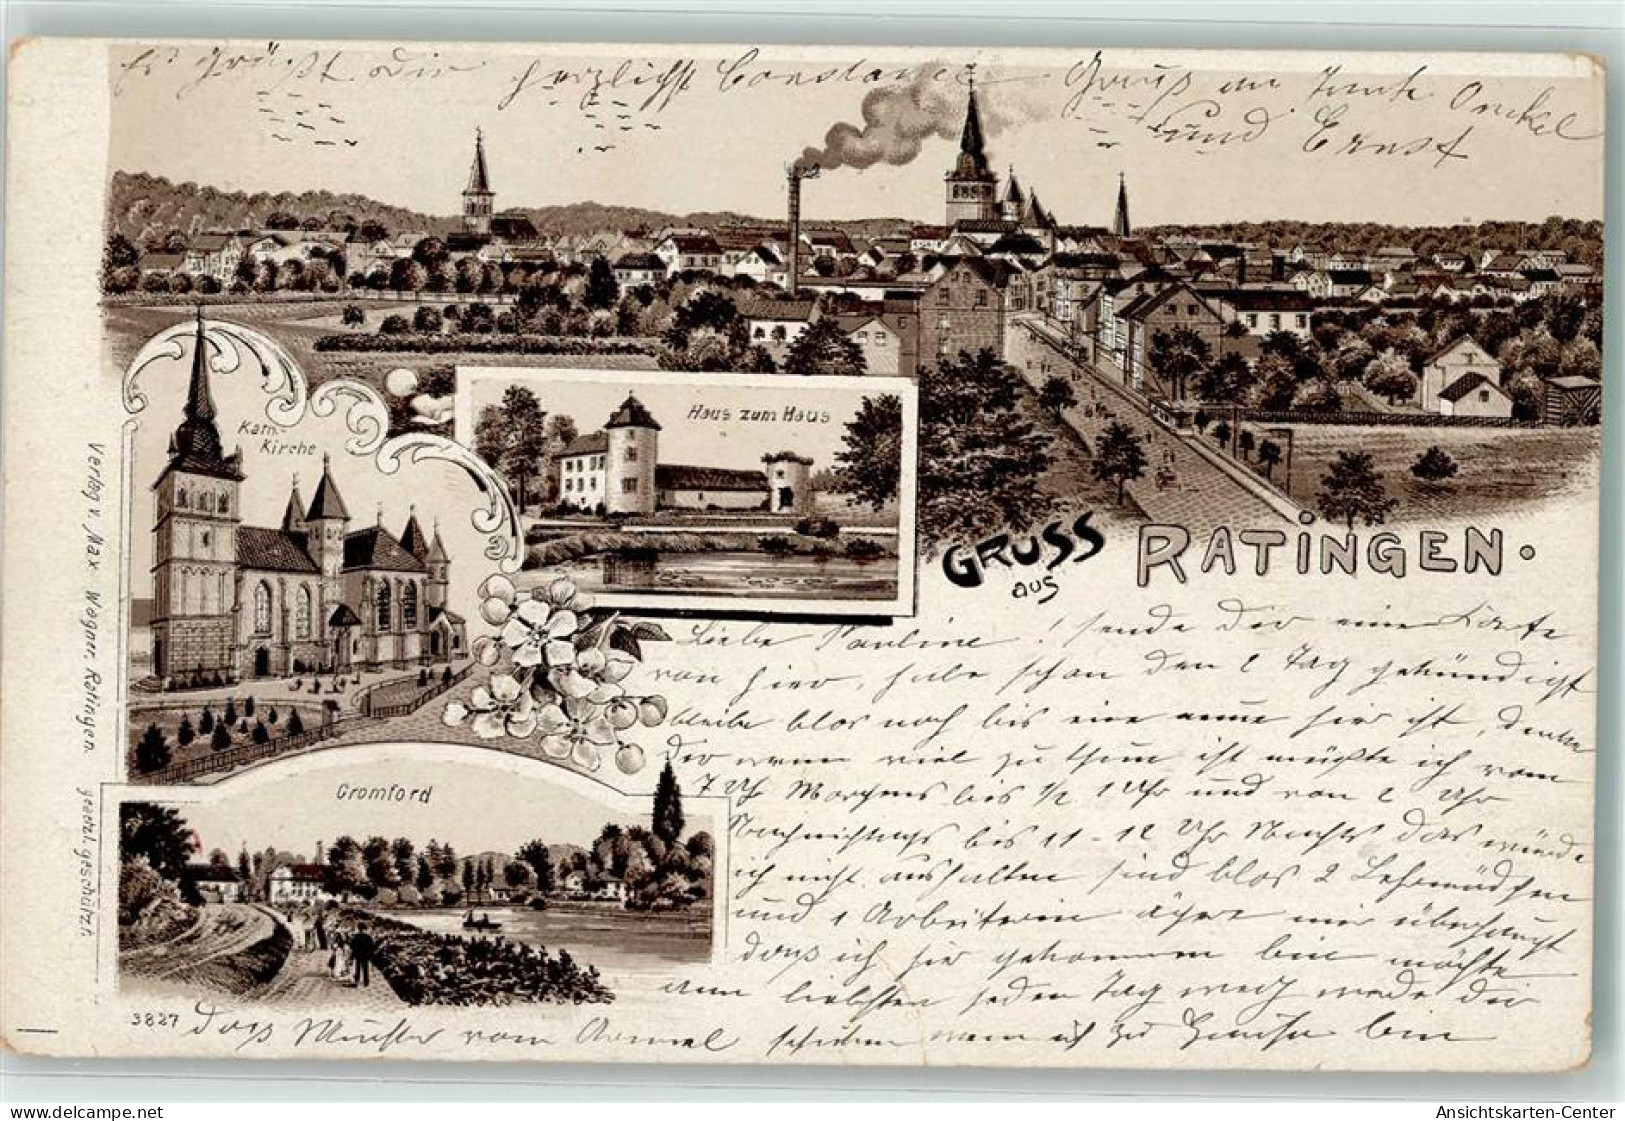 Es grüßt Dir herzlichst Constance. Gruß an Tante Onckel
und Ernst
Kath.-
Kirche
Haus zum Haus
GRUSS
aus
RATINGEN.
Liebe Pauline! sende Dir eine Karte
von hier, habe schon den 2 Tag gekündigt
bleibe blos noch bis eine neue hier ist, denke
Dir wenn viel zu thun ist müßte ich vom
7 Uhr Morgens bis ½ 1 Uhr und von 2 Uhr
Nachmittags bis 11-12 Uhr Nachts das würde
ich nicht aushalten sind blos 2 Lehrmädchen
und 1 Arbeiterin ägere mir überhaupt
dass ich hier gekommen bin möchte
am liebsten jeden Tag weg werde Dir
dass Muster vom Aermel schicken wenn ich zu Hause bin
Cromford
3827
Verlag v. Max Wagner, Ratingen. gesetzl. geschützt.
www.delcampe.net
Ansichtskarten-Center